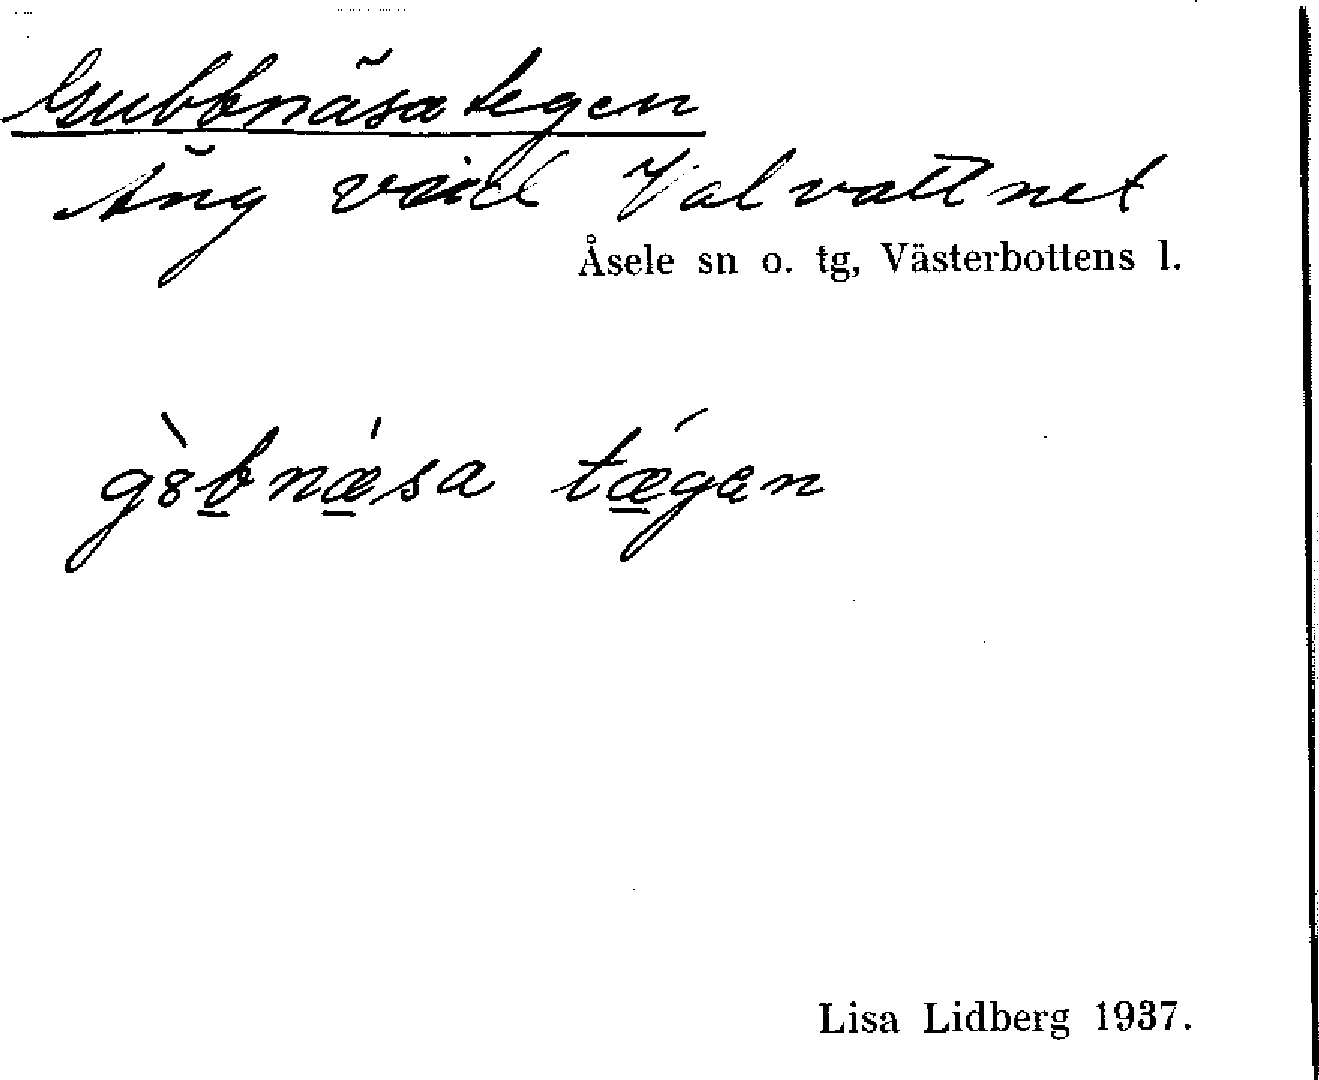 Gubbnäsategen
Äng vid Valvattnet
Åsele sn o. tg, Västerbottens l.
gòbnæ̱'sa tǽ̱gen
Lisa Lidberg 1937.